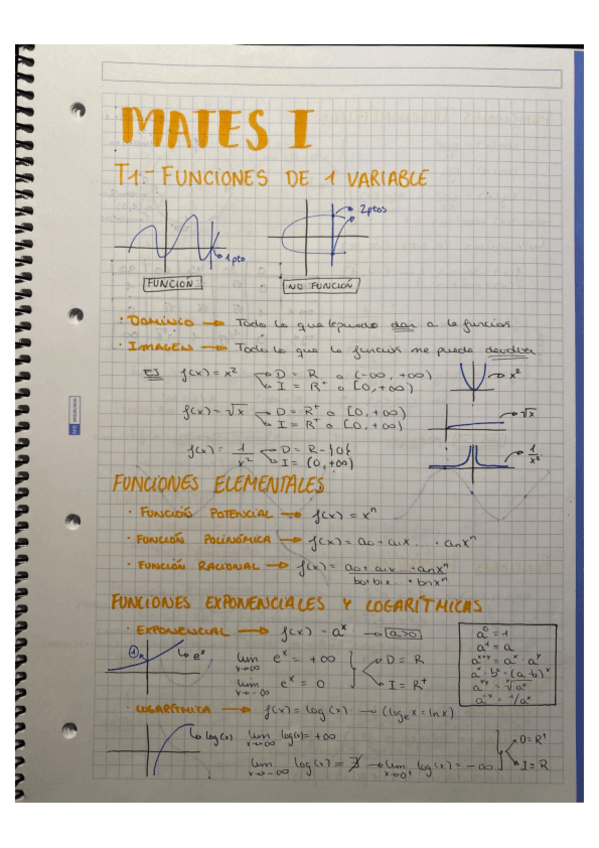 MATES I
T1.- FUNCIONES DE 1 VARIABLE
2ptos
1pto
FUNCIÓN
NO FUNCIÓN
· DOMINIO → Todo lo que le puedo dar a la función
· IMAGEN → Todo lo que la función me puede devolver
Ej f(x) = x² D = R o (-∞, +∞) x²
I = R⁺ o [0, +∞)
f(x) = √x D = R⁺ o [0, +∞) √x
I = R⁺ o [0, +∞)
f(x) = 1/x² D = R - {0} 1/x²
I = (0, +∞)
FUNCIONES ELEMENTALES
· FUNCIÓN POTENCIAL → f(x) = xⁿ
· FUNCIÓN POLINÓMICA → f(x) = a₀ + a₁x ... + aₙxⁿ
· FUNCIÓN RACIONAL → f(x) = a₀ + a₁x ... + aₙxⁿ
b₀ + b₁x ... + bₙxⁿ
FUNCIONES EXPONENCIALES Y LOGARÍTMICAS
· EXPONENCIAL → f(x) = aˣ → a>0
a⁰ = 1
a¹ = a
aˣ⁺ʸ = aˣ · aʸ
aˣ · bˣ = (a·b)ˣ
a⁻ˣ = 1/aˣ
1 eˣ lim x→∞ eˣ = +∞ D = R
lim x→-∞ eˣ = 0 I = R⁺
· LOGARÍTMICA → f(x) = log(x) → (logₑx = lnx)
log(x) lim x→∞ log(x) = +∞ D = R⁺
lim x→-∞ log(x) = ∄ → lim x→0⁺ log(x) = -∞ I = R